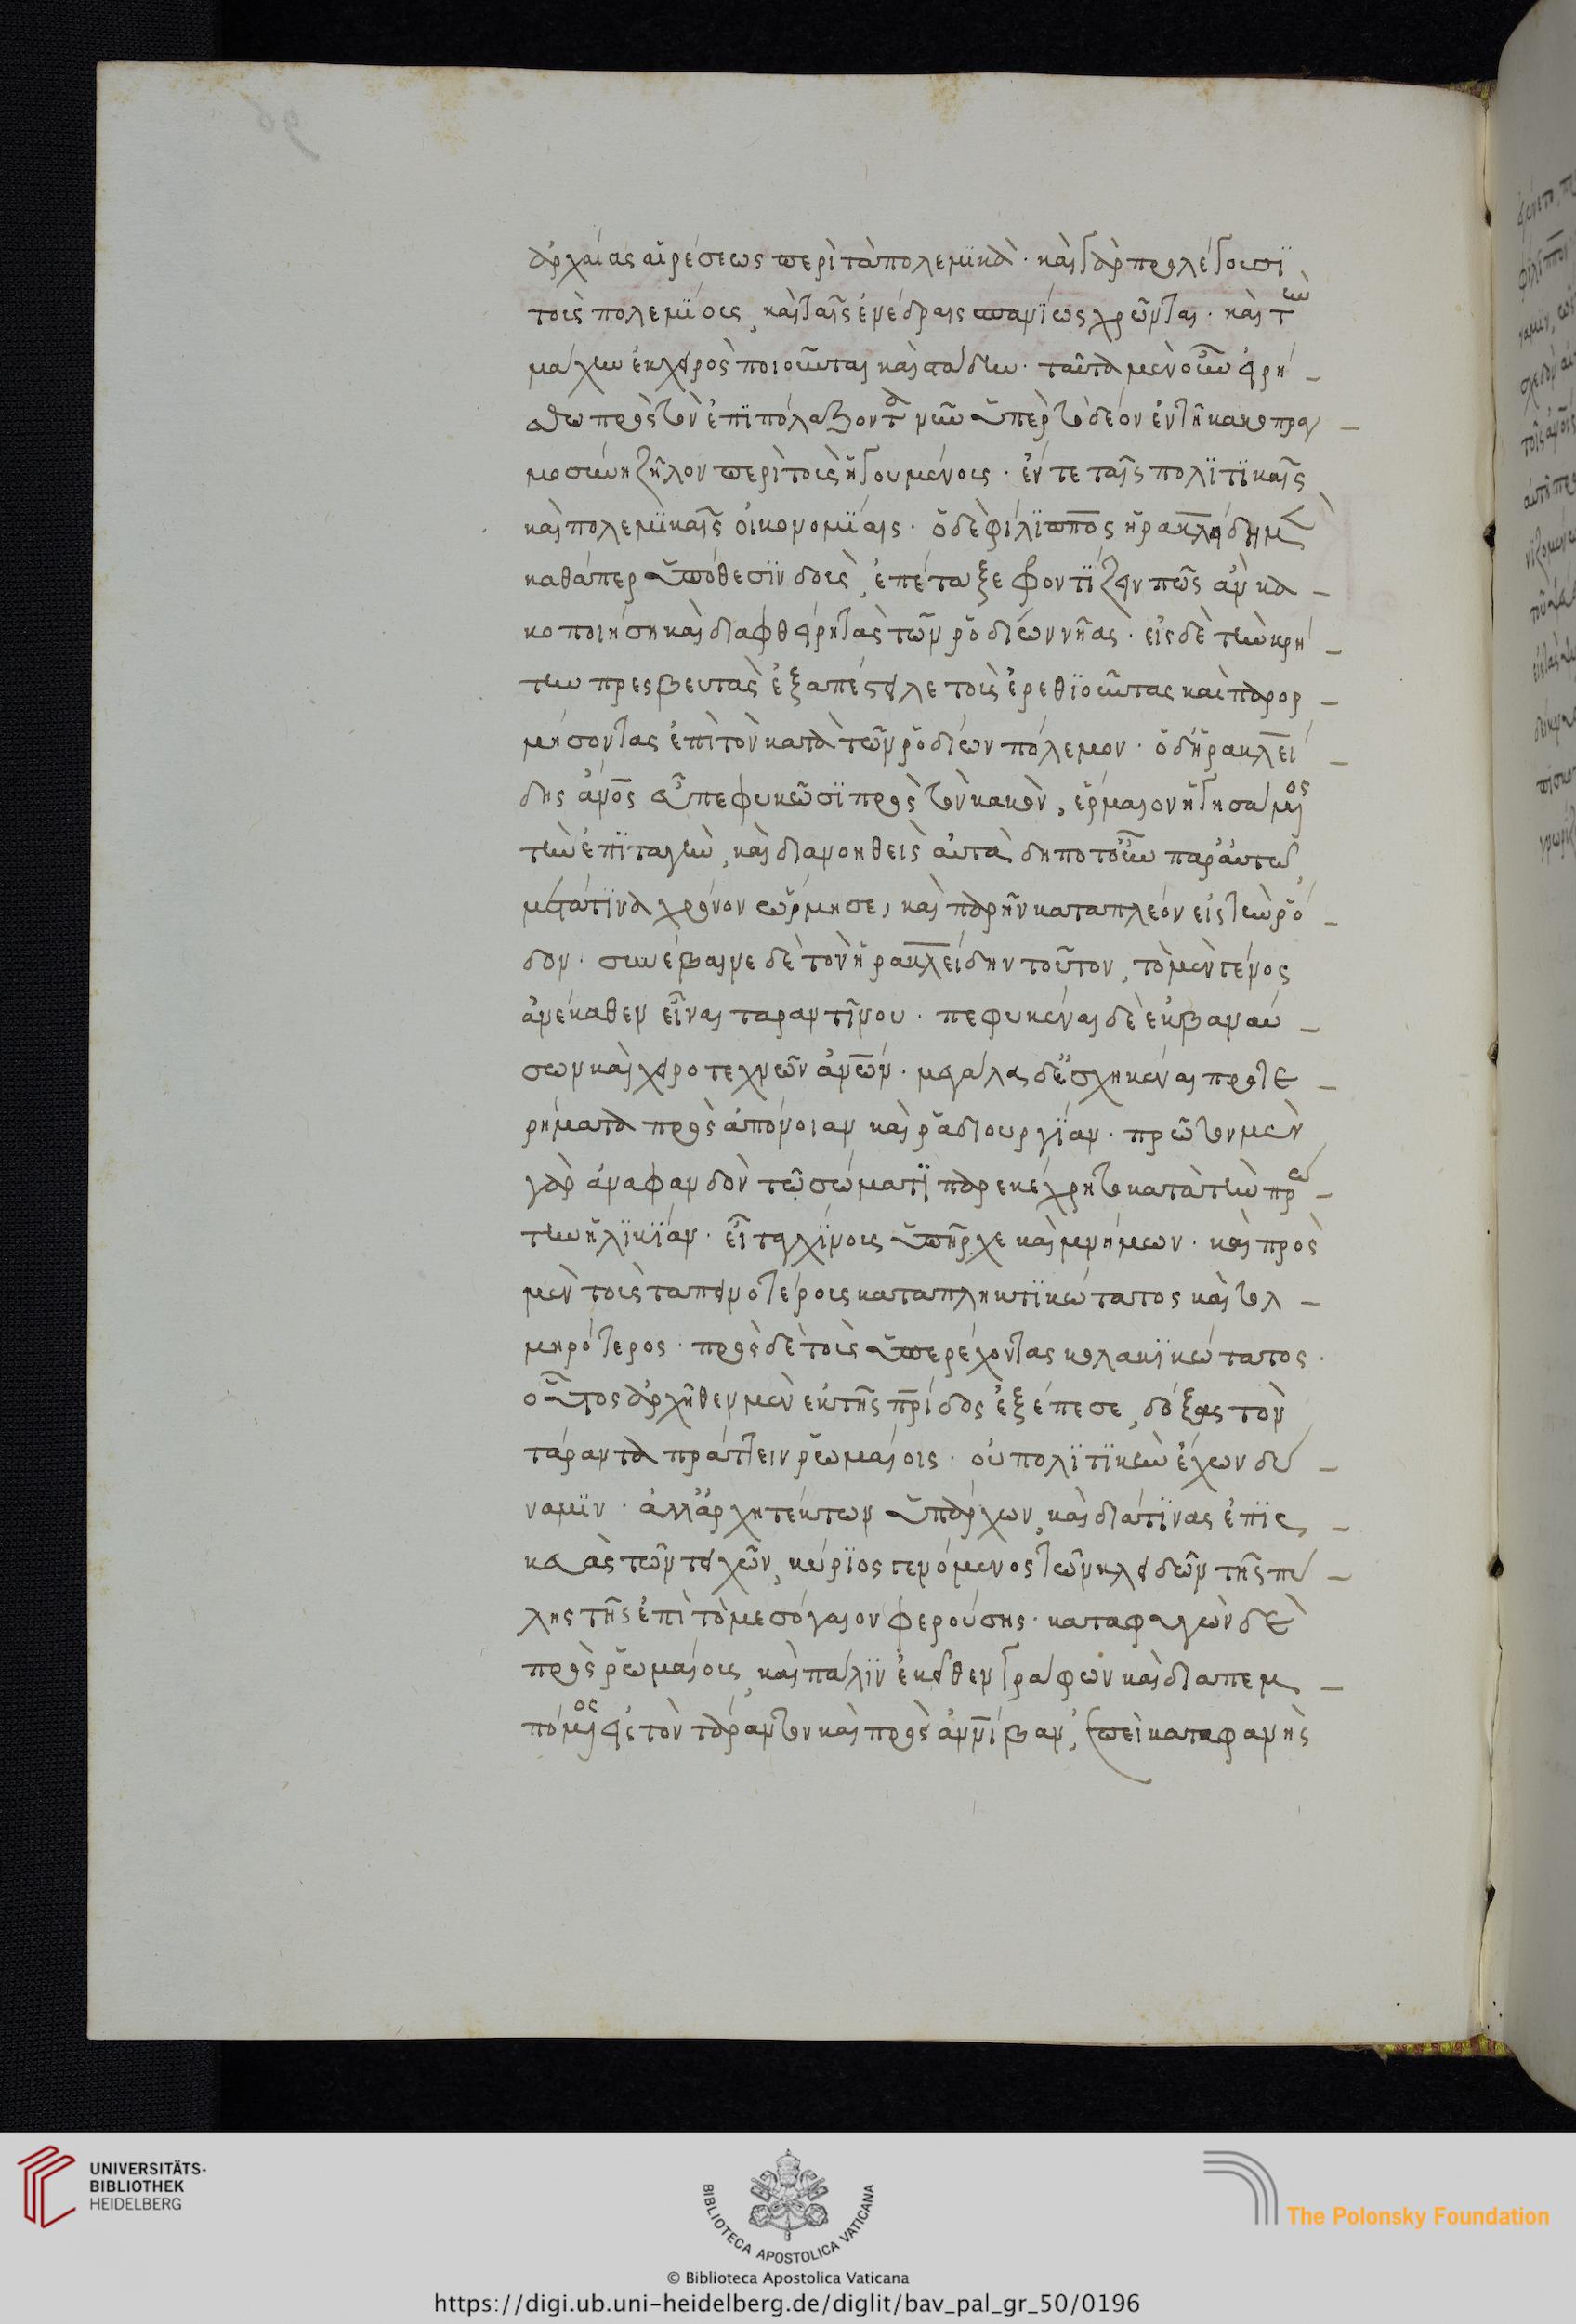 ἀρχαίας αἱρέσεως περὶ τὰ πολεμϊκὰ · καὶ γὰρ προλέγουσϊ
τοὺς πολεμΐους, καὶ ταῖς ἐνέδραις σπανΐως χρῶνται · καὶ τὴν
μάχην ἐκ χειρὸς ποιοῦνται καὶ σταδην · ταῦτα μὲν οὖν εἰρή-
σθω πρὸς τὸν ἐπϊπολάζοντα νῦν ὑπὲρ τὸ δέον ἐν τῆ κακοπραγ-
μοσύνη ζῆλον περὶ τοὺς ἡγουμένους · ἔν τε ταῖς πολϊτϊκαῖς
καὶ πολεμϊκαῖς οἰκονομΐαις · ὁ δὲ φίλϊππος ἡρακλείδη μὲν
καθάπερ ὑπόθεσϊν δοὺς, ἐπέταξε φροντϊζειν πῶς ἂν κα-
κοποιήση καὶ διαφθείρη τὰς τῶν ῥοδίων νῆας · εἰς δὲ τὴν κρή-
την πρεσβευτὰς ἐξαπέστειλε τοὺς ἐρεθϊοῦντας καὶ παρορ-
μήσοντας ἐπὶ τὸν κατὰ τῶν ῥοδίων πόλεμον · ὁ δ' ἡρακλεί-
δης ἄνος εὖ πεφυκὼσϊ πρὸς τὸν κακὸν, ἕρμαιον ἡγησάμενος
τὴν ἐπϊταγὴν, καὶ διανοηθεὶς ἅττα δήποτ' οὖν παρ' αὐτῶ,
μετά τϊνα χρόνον ὥρμησε, καὶ παρῆν καταπλέον εἰς τὴν ῥό-
δον · συνέβαινε δὲ τὸν ἡρακλείδην τοῦτον, τὸ μὲν γένος
ἀνέκαθεν εἶναι ταραντῖνου · πεφυκέναι δὲ ἐκ βαναύ-
σων καὶ χειροτεχνῶν ἀνων · μεγάλα δ' ἐσχηκέναι προτε-
ρήματα πρὸς ἀπόνοιαν καὶ ῥαδιουργΐαν · πρῶτον μὲν
γὰρ ἀναφανδὸν τῶ σώματϊ παρεκέχρητο κατὰ τὴν πρώ-
την ἡλϊκΐαν · εἶτ' ἀγχΐνους ὑπῆρχε καὶ μνήμων · καὶ πρὸς
μὲν τοὺς ταπεινοτέρους καταπληκτϊκώτατος καὶ τολ-
μηρότερος · πρὸς δὲ τοὺς ὑπερέχοντας κολακϊκώτατος ·
οὗτος ἀρχῆθεν μὲν ἐκ τῆς πρίδος ἐξέπεσε, δόξας τὸν
τάραντα πράττειν ῥωμαίοις · οὐ πολϊτϊκὴν ἔχων δύ-
ναμϊν · ἀλλ' ἀρχητέκτων ὑπάρχων, καὶ διά τϊνας ἐπϊσ-
κευὰς τῶν τειχῶν, κύρϊος γενόμενος τῶν κλειδῶν τῆς πύ-
λης τῆς ἐπὶ τὸ μεσόγαιον φερούσης · καταφυγὼν δὲ
πρὸς ῥωμαίους, καὶ πάλϊν ἐκεῖθεν γράφων καὶ διαπεμ-
πόμενος εἰς τὸν τάραντον καὶ πρὸς ἀννίβαν, ἐπεὶ καταφανὴς
UNIVERSITÄTS-
BIBLIOTHEK
HEIDELBERG
BIBLIOTECA APOSTOLICA VATICANA
The Polonsky Foundation
© Biblioteca Apostolica Vaticana
https://digi.ub.uni-heidelberg.de/diglit/bav_pal_gr_50/0196